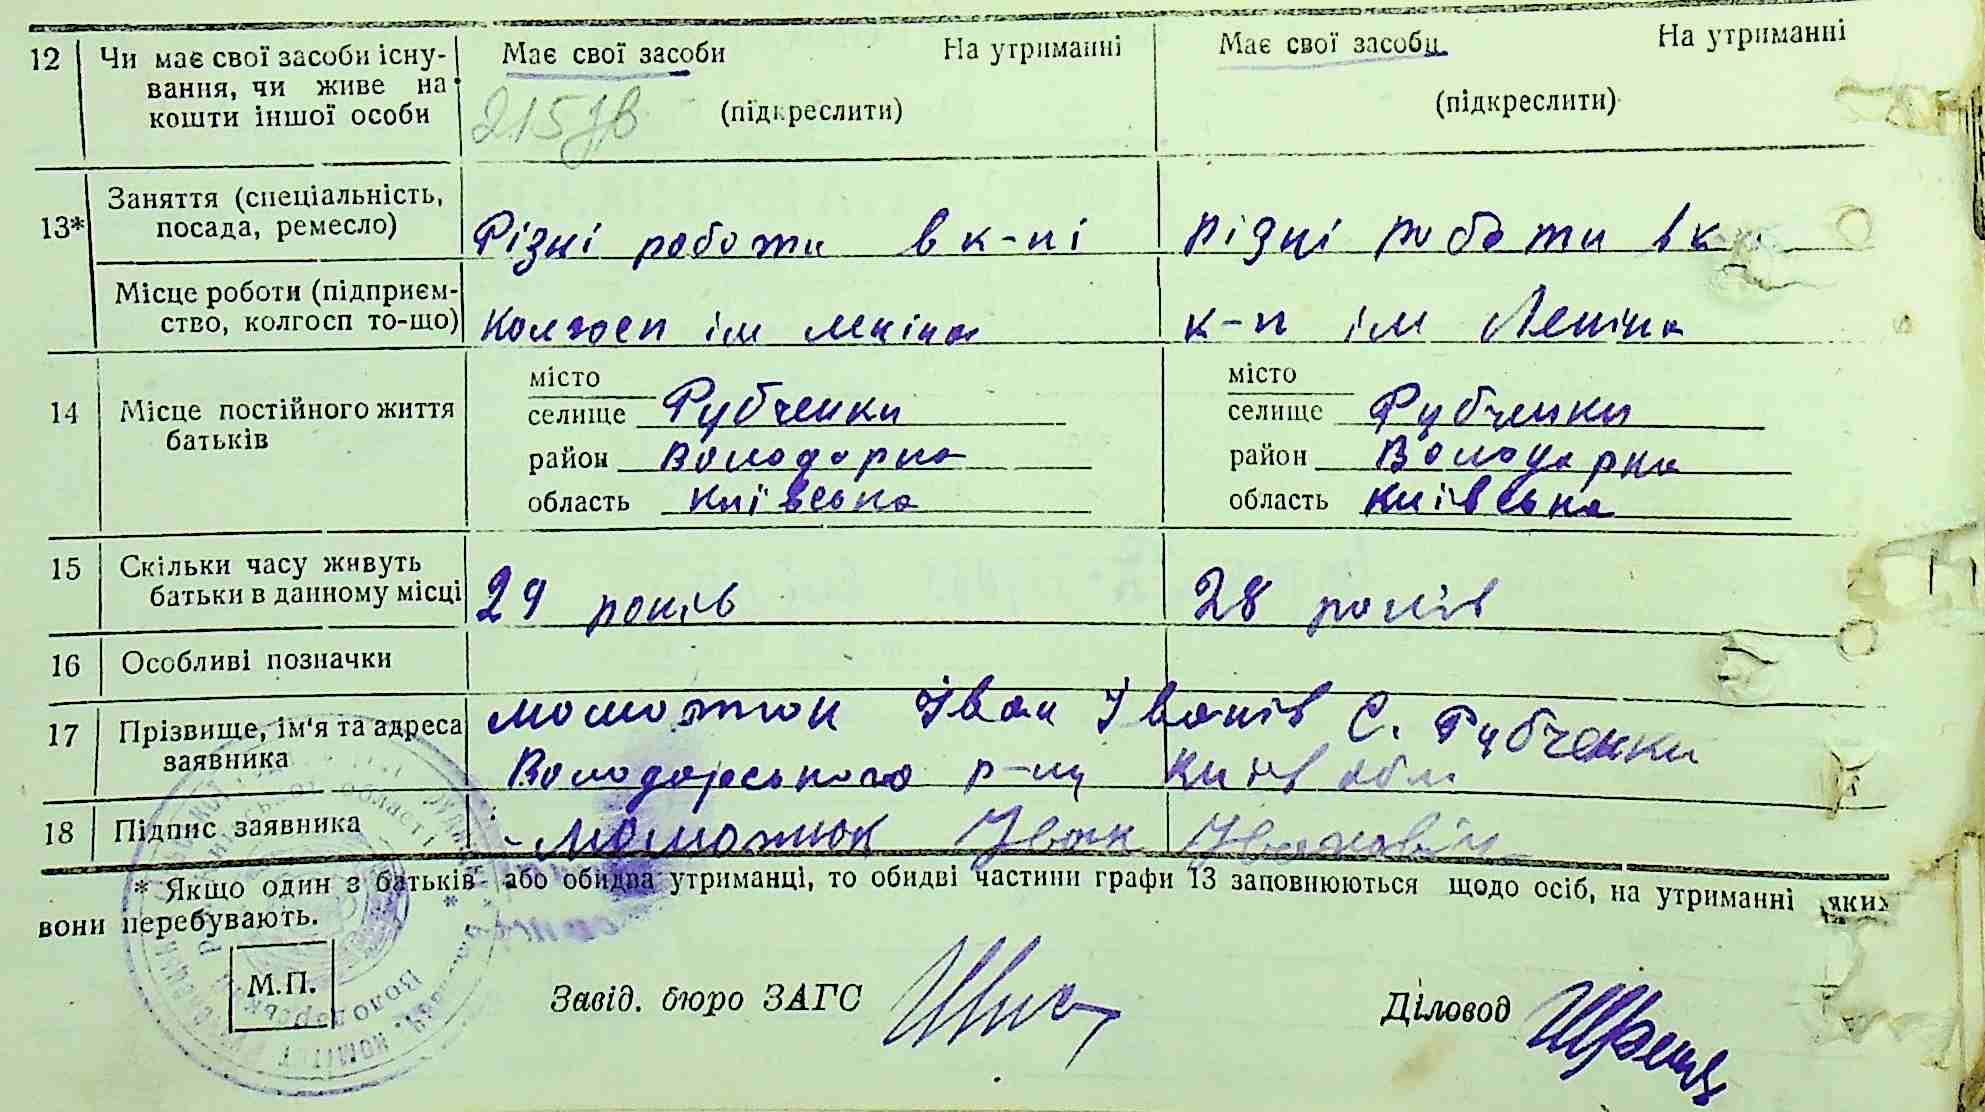 12 Чи має свої засоби існу- Має свої засоби На утриманні Має свої засоби На утриманні
вання, чи живе на
кошти іншої особи (підкреслити) (підкреслити)
13* Заняття (спеціальність,
посада, ремесло) Різні роботи в к-пі Різні роботи в к
Місце роботи (підприєм-
ство, колгосп то-що) Колгосп ім Леніна к-п ім Леніна
місто місто
14 Місце постійного життя селище Рубченки селище Рубченки
батьків район Володарка район Володарка
область Київська область Київська
15 Скільки часу живуть
батьки в данному місці 29 років 28 років
16 Особливі позначки
17 Прізвище, ім'я та адреса Момотюк Іван Іванів С. Рубченки
заявника Володарського р-ну Київ обл
18 Підпис заявника Момотюк Іван Іванович
* Якщо один з батьків або обидва утриманці, то обидві частини графи 13 заповнюються щодо осіб, на утриманні яких
вони перебувають.
М.П. Завід. бюро ЗАГС Діловод